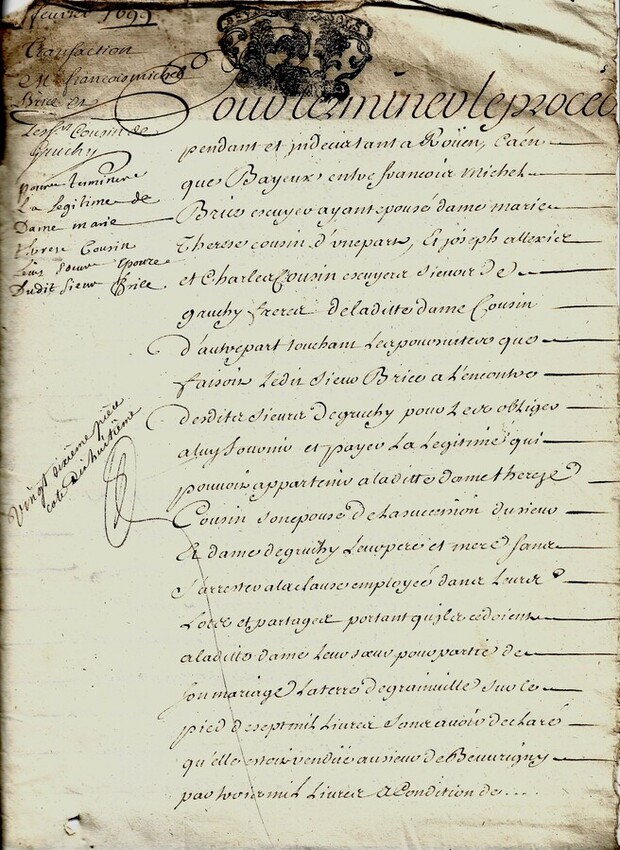 febvrier 1695
Transaction
Mr francois michel
Brice et
Les srs Cousin de
Gruchy
pour terminer
La Legitime de
Dame marie
therese Cousin
Leur soeur Epouze
Dudit sieur Brice
vingt dixieme piére
cote du huitiéme
Pour terminer le procéz
pendant et indecis tant a Roüen, Caën
que Bayeux entre francois michel
Brice escuyer ayant epousé dame marie
Therese cousin d'une part, Et joseph allexis
et Charles Cousin escuyers sieurs de
gruchy freres de laditte dame Cousin
d'autre part touchant Les poursuittes que
faisoit Ledit sieur Brice a L'encontre
desdits sieurs de gruchy pour Les obliger
a luy fournir et payer La Legitime qui
pouvoit appartenir a laditte dame thereze
Cousin son epouse de La succession du sieur
Et dame de gruchy Leur pere et mere sans
s'arrester a la clause employée dans Leurs
Lots et partages portant qu'ils cedoient
a laditte dame Leur soeur pour partie de
son mariage La terre de grainville sur le
pied de sept mil Livres sans avoir declaré
qu'elle estoit vendüe au sieur de Beuvrigny
par trois mil Livres a Condition de ....